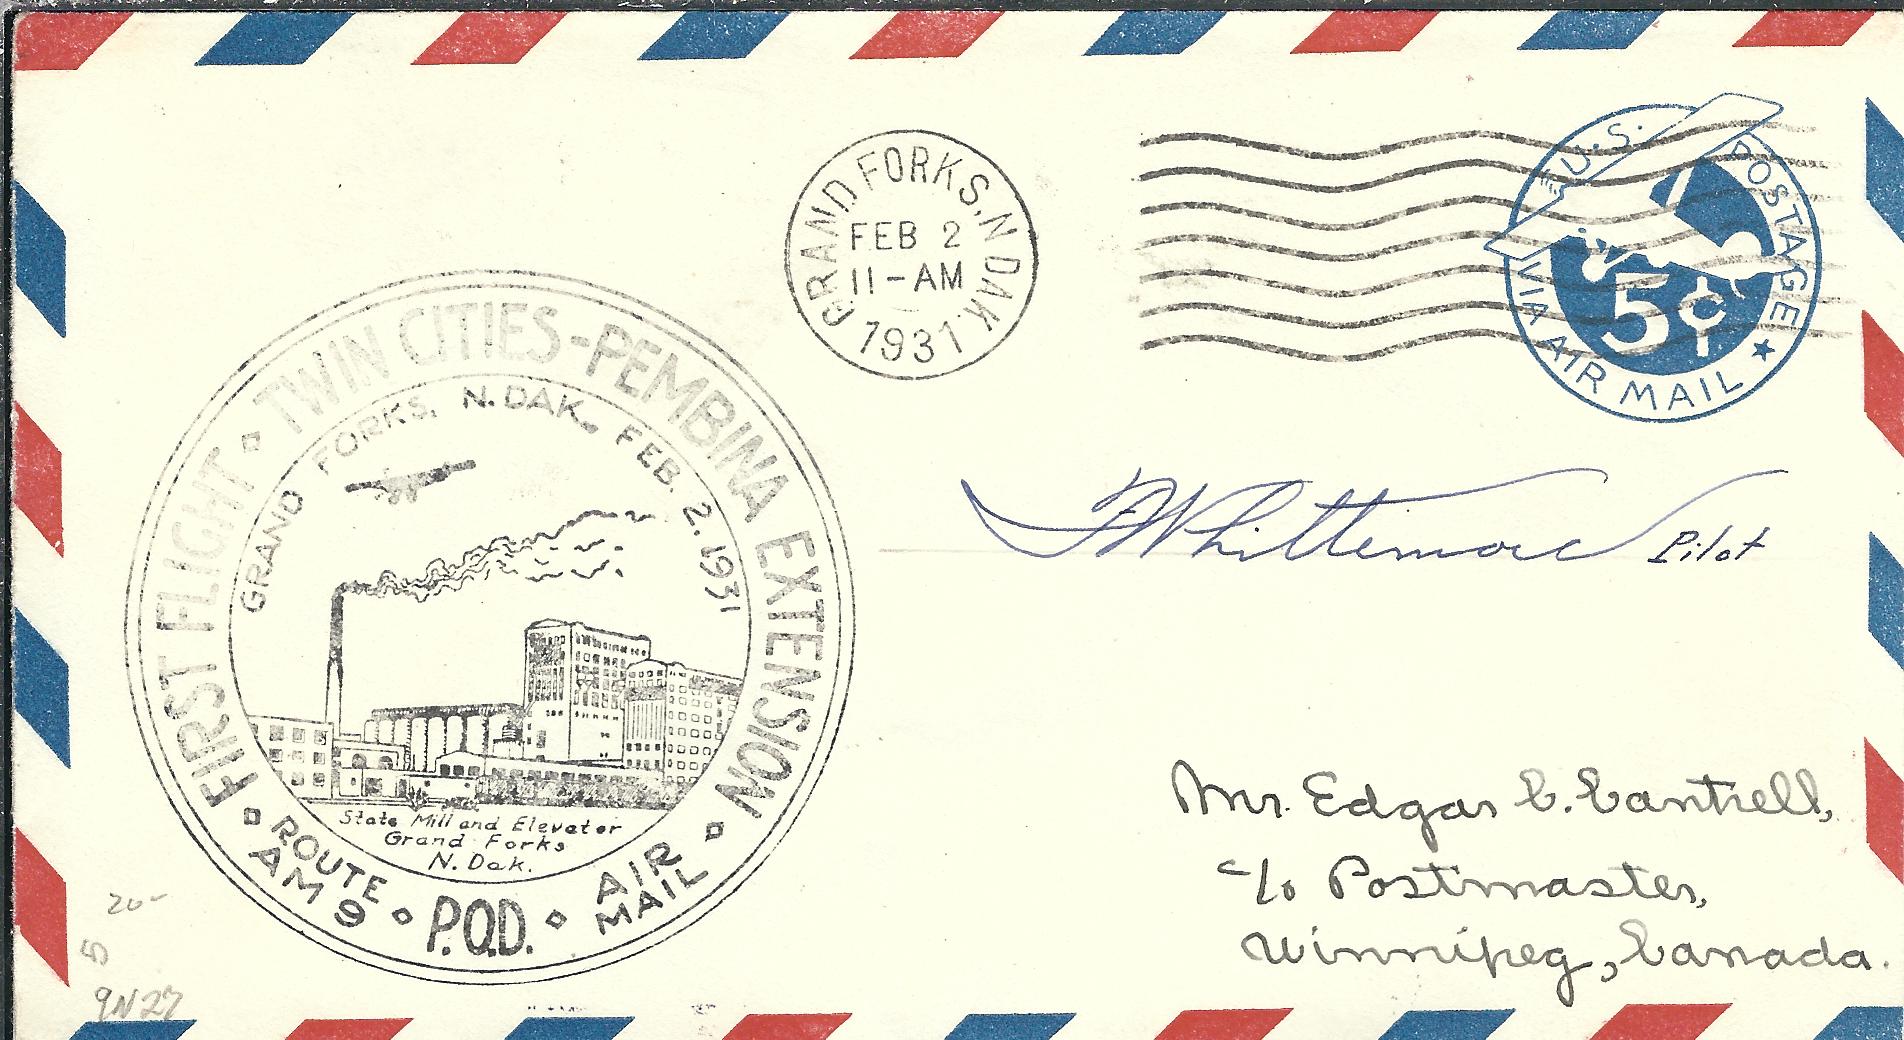 GRAND FORKS, N. DAK.
FEB 2
11-AM
1931
U.S. POSTAGE
VIA AIR MAIL
5¢
FIRST FLIGHT TWIN CITIES-PEMBINA EXTENSION
GRAND FORKS, N. DAK., FEB. 2. 1931
State Mill and Elevator
Grand Forks
N. Dak.
ROUTE
AM 9
P.O.D.
AIR
MAIL
Whittemore Pilot
Mr. Edgar C. Cantrell,
c/o Postmaster,
Winnipeg, Canada.
20-
5
9N27